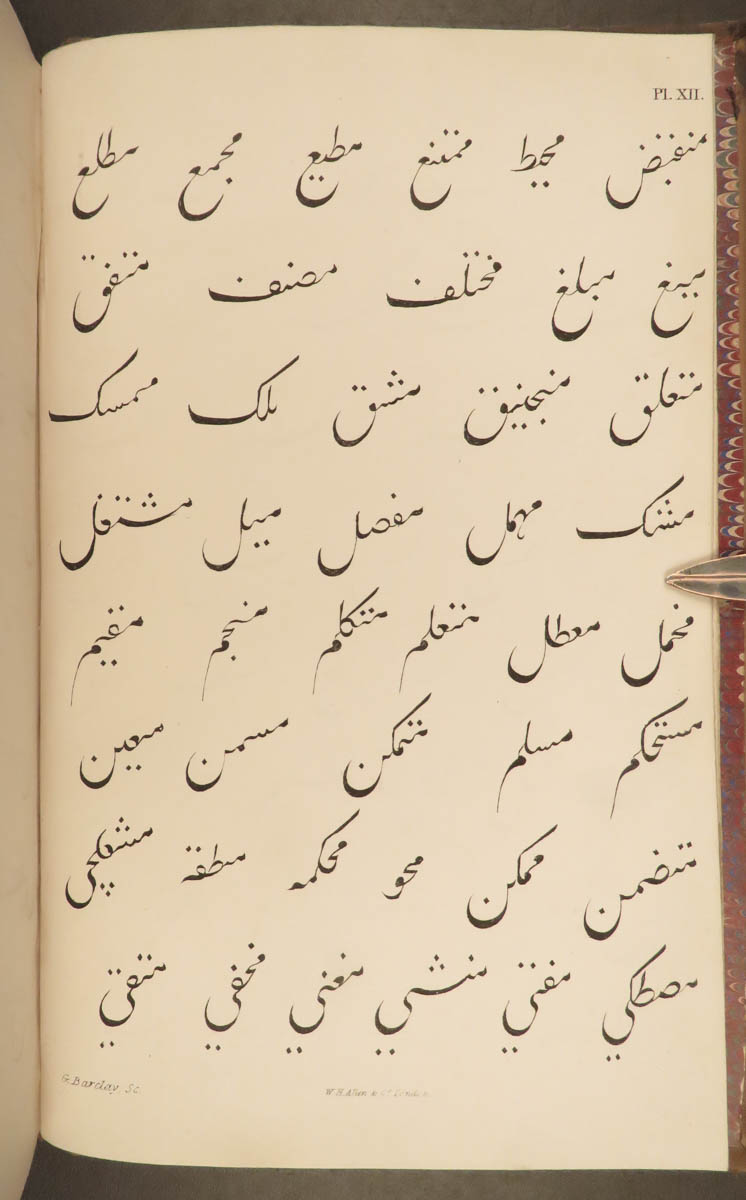 Pl. XII.
منقبض محيط ممتنع مطيع مجمع مطلع
مبلغ مختلف مصنف متفق
متعلق منجنيق مشق ملك ممسك
مشك مهمل مفصل ميل مشتغل
مخمل معطل متعلم متكلم منجم مقيم
مستحكم مسلم متمكن مسمن معين
متضمن ممكن محو محكمه
مصطكي مفتي منشي مغني مخفي متقي
G. Barclay, Sc.
W. H. Allen & Co. London.